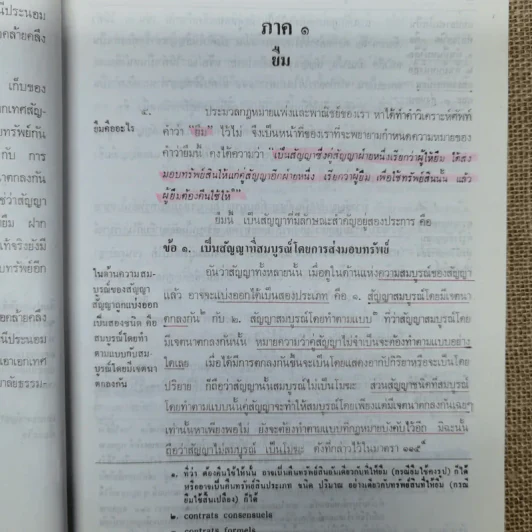 ภาค ๑
ยืม
๔. ประมวลกฎหมายแพ่งและพาณิชย์ของเรา หาได้ทำคำวิเคราะห์ศัพท์
ยืมคืออะไร
คำว่า "ยืม" ไว้ไม่ จึงเป็นหน้าที่ของเราที่จะพยายามกำหนดความหมายของ
คำว่ายืมนี้ คงได้ความว่า "เป็นสัญญาซึ่งคู่สัญญาฝ่ายหนึ่งเรียกว่าผู้ให้ยืม ได้ส่ง
มอบทรัพย์สินให้แก่คู่สัญญาอีกฝ่ายหนึ่ง เรียกว่าผู้ยืม เพื่อใช้ทรัพย์สินนั้น แล้ว
ผู้ยืมต้องคืนใช้ให้"๑
ยืมนี้ เป็นสัญญาที่มีลักษณะสำคัญอยู่สองประการ คือ
ข้อ ๑. เป็นสัญญาที่สมบูรณ์โดยการส่งมอบทรัพย์
ในด้านความสม-
บูรณ์ของสัญญา
สัญญาถูกแบ่งออก
เป็นสองชนิด คือ
สมบูรณ์โดยทำ
ตามแบบกับสม-
บูรณ์โดยมีเจตนา
ตกลงกัน
อันว่าสัญญาทั้งหลายนั้น เมื่อดูในด้านแห่งความสมบูรณ์ของสัญญา
แล้ว อาจจะแบ่งออกได้เป็นสองประเภท คือ ๑. สัญญาสมบูรณ์โดยมีเจตนา
ตกลงกัน๒ กับ ๒. สัญญาสมบูรณ์โดยทำตามแบบ๓ ที่ว่าสัญญาสมบูรณ์โดย
มีเจตนาตกลงกันนั้น หมายความว่าสัญญาไม่จำเป็นจะต้องทำตามแบบอย่าง
ใดเลย เมื่อได้มีการตกลงกันขึ้นจะเป็นโดยแสดงอากัปกิริยาหรือจะเป็นโดย
ปริยาย ก็ถือว่าสัญญานั้นสมบูรณ์ไม่เป็นโมฆะ ส่วนสัญญาชนิดที่สมบูรณ์
โดยทำตามแบบนั้นคู่สัญญาจะทำให้สมบูรณ์โดยเพียงแต่มีเจตนาตกลงกันเฉยๆ
เท่านั้นหาเพียงพอไม่ ยังจะต้องทำตามแบบที่กฎหมายบังคับไว้อีก มิฉะนั้น
ถือว่าสัญญาไม่สมบูรณ์ เป็นโมฆะ ดังที่กล่าวไว้ในมาตรา ๑๑๕
๑. ที่ว่า ต้องคืนใช้ให้นั้น อาจเป็นคืนทรัพย์สินอันเดียวกับที่ให้ยืม (กรณียืมใช้คงรูป) ก็ได้
หรืออาจเป็นคืนทรัพย์สินประเภท ชนิด ปริมาณ อย่างเดียวกับทรัพย์สินที่ให้ยืม (กรณี
ยืมใช้สิ้นเปลือง) ก็ได้
๒. contrats consensuels
contrats formels